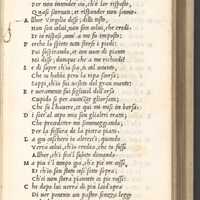 Per non intender cio, ch'è lor risposto,
Quasi scornati; et risponder non sanno.
Allhor Virgilio disse; dilli tosto,
Non son colui, non son colui, che credi.
Et io risposi, com' a me fu imposto:
Perche lo spirto tutti storse i piedi:
Poi sospirando, et con voce di pianto
Mi disse; dunque che a me richiedi?
Se di saper ch'io sia, ti cal cotanto,
Che tu habbi pero la ripa corsa;
Sappi, ch'i fui vestito del gran manto:
Et veramente fui figliuol dell'orsa
Cupido si per avanzar gliorsatti,
Che su l'havere, et qui me misi in borsa.
Di sott'al capo mio son glialtri tratti,
Che precedetter me simoneggiando,
Per la fessura de la pietra piatti.
La giu cascherò io altresi; quando
Verra colui, ch'io credea, che tu fossi
Allhor, ch'i feci'l subito dimando.
Ma piu è'l tempo gia, che i piè mi cossi,
Et ch'io son stato cosi sotto sopra;
Ch'ei non stara piantato co piè rossi:
Che dopo lui verra di piu laid'opra
Di ver ponente un pastor senza legge